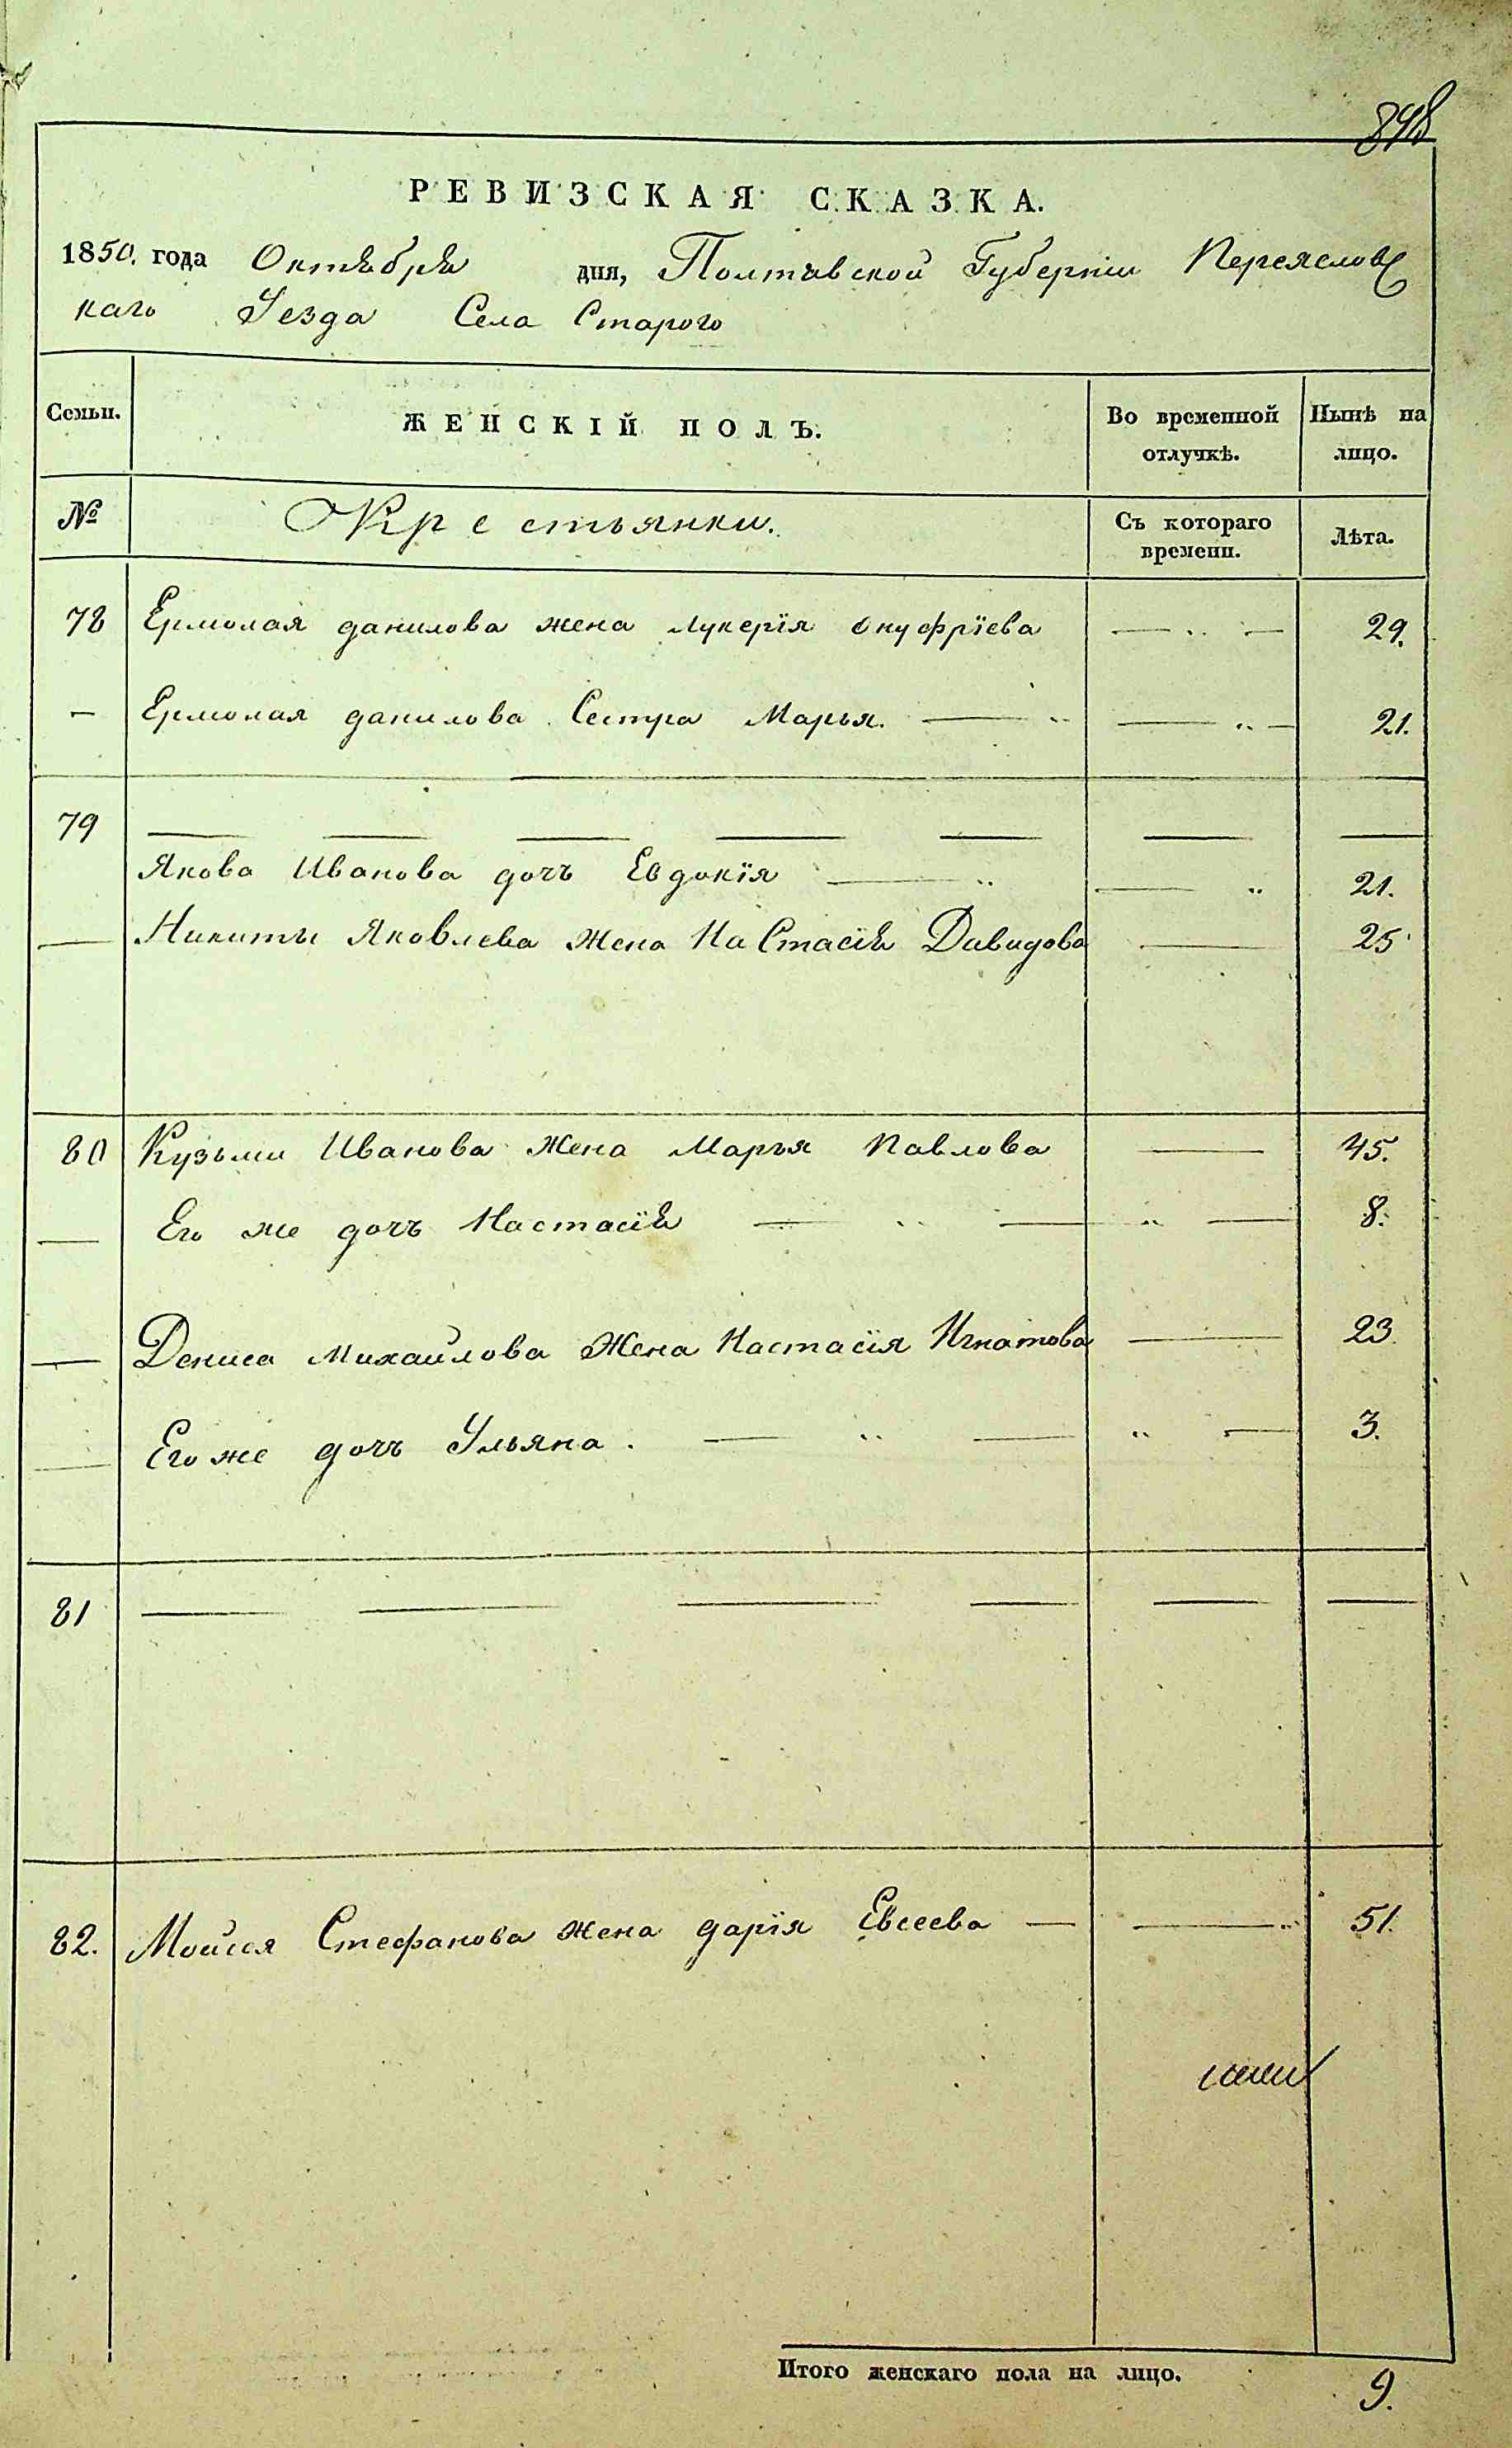 848
РЕВИЗСКАЯ СКАЗКА.
1850. года Октября дня, Полтавской Губернии Переяславс
каго Уезда Села Старого
Семьи. ЖЕНСКІЙ ПОЛЪ. Во временной отлучкѣ. Нынѣ на лицо.
№ Крестьянки. Съ котораго времени. Лѣта.
78 Ермолая данилова жена Лукерія Онуфріева — 29.
— Ермолая данилова Сестра Марья. — 21.
79 — — — — — — —
Якова Иванова дочъ Евдокія — 21.
— Никиты Яковлева Жена НаСтасія Давидова — 25
80 Кузьмы Иванова Жена Марья Павлова — 45.
— Его же дочъ Настасія — 8.
— Дениса Михайлова Жена Настасія Игнатова — 23
— Его же дочъ Ульяна. — 3.
81 — — — — — —
82. Моисея Стефанова жена дарія Евсеева — 51.
Итого женскаго пола на лицо. 9.